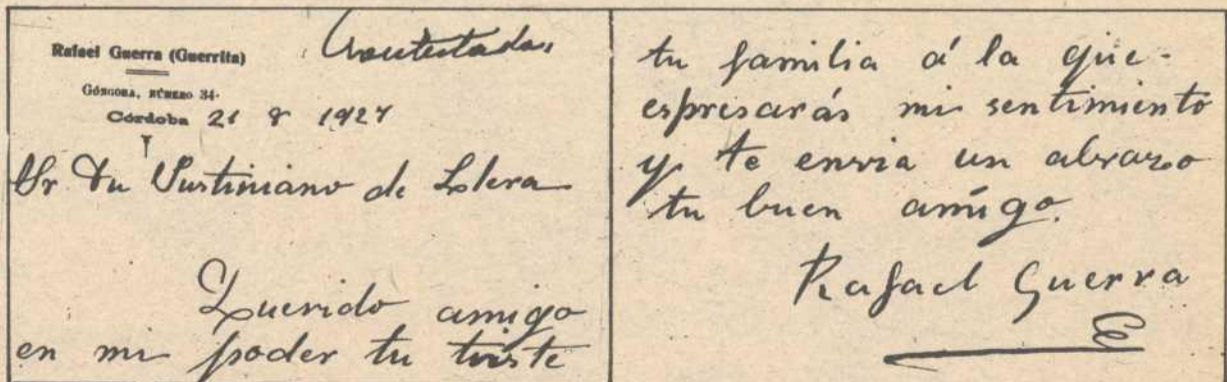 Rafael Guerra (Guerrita)
Contestada,
GÓNGORA, NÚMERO 34.
Córdoba 21 8 1927
Sr Dn Justiniano de Llera
Querido amigo
en mi poder tu triste
tu familia á la que
espresarás mi sentimiento
y te envia un abrazo
tu buen amigo.
Rafael Guerra